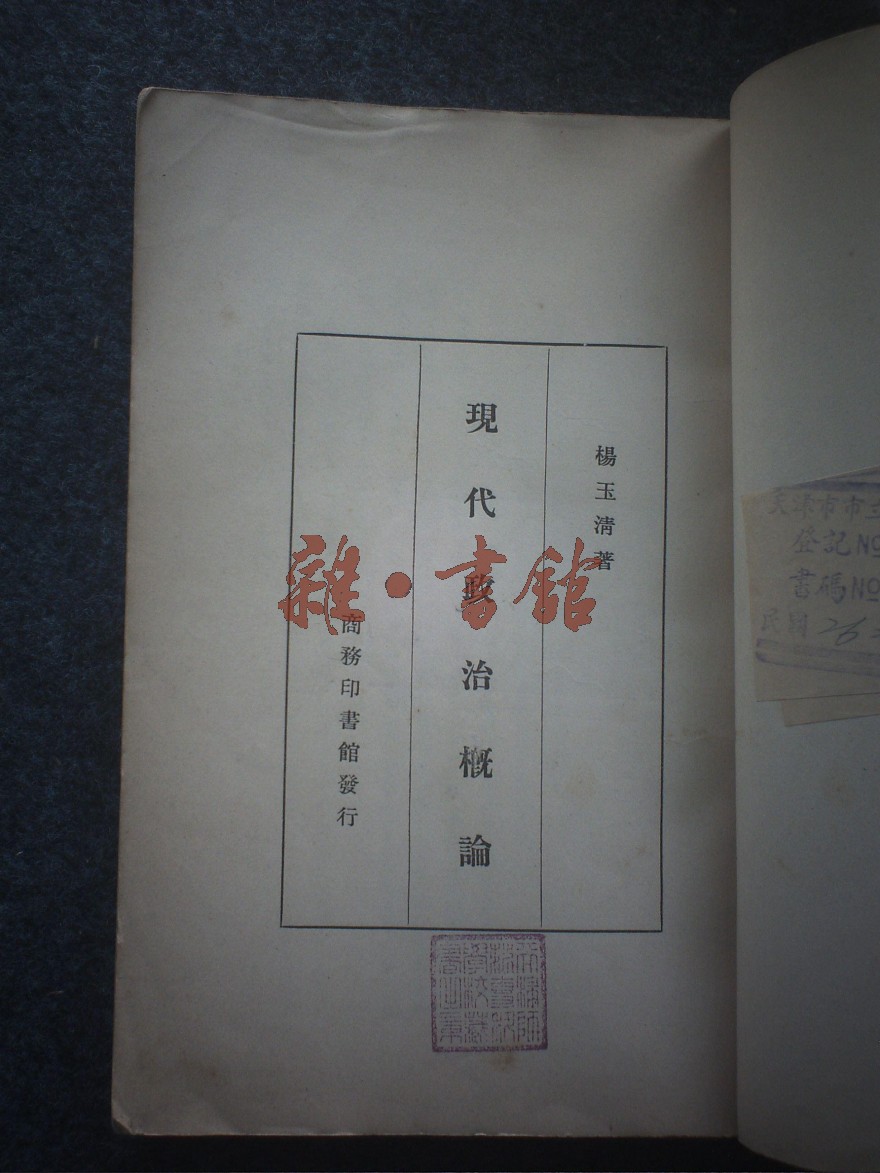 楊玉清著
現代政治概論
商務印書館發行
雜·書館
天津市市立
登記NO
書碼NO
民國26